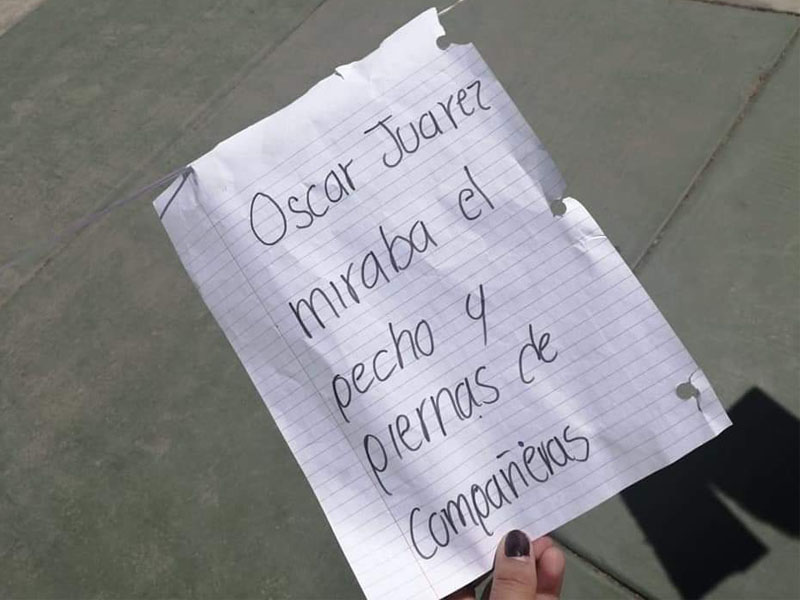 Oscar Juarez
miraba el
pecho y
piernas de
Compañeras